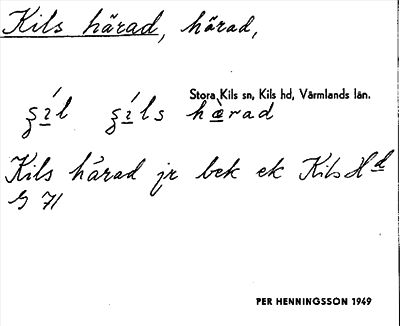 Kils härad, härad,
Stora Kils sn, Kils hd, Värmlands län.
ʂí̱l ʂí̱ls hæ̱̀rad
Kils härad jr bek ek Kils Hd
G 71
PER HENNINGSSON 1949